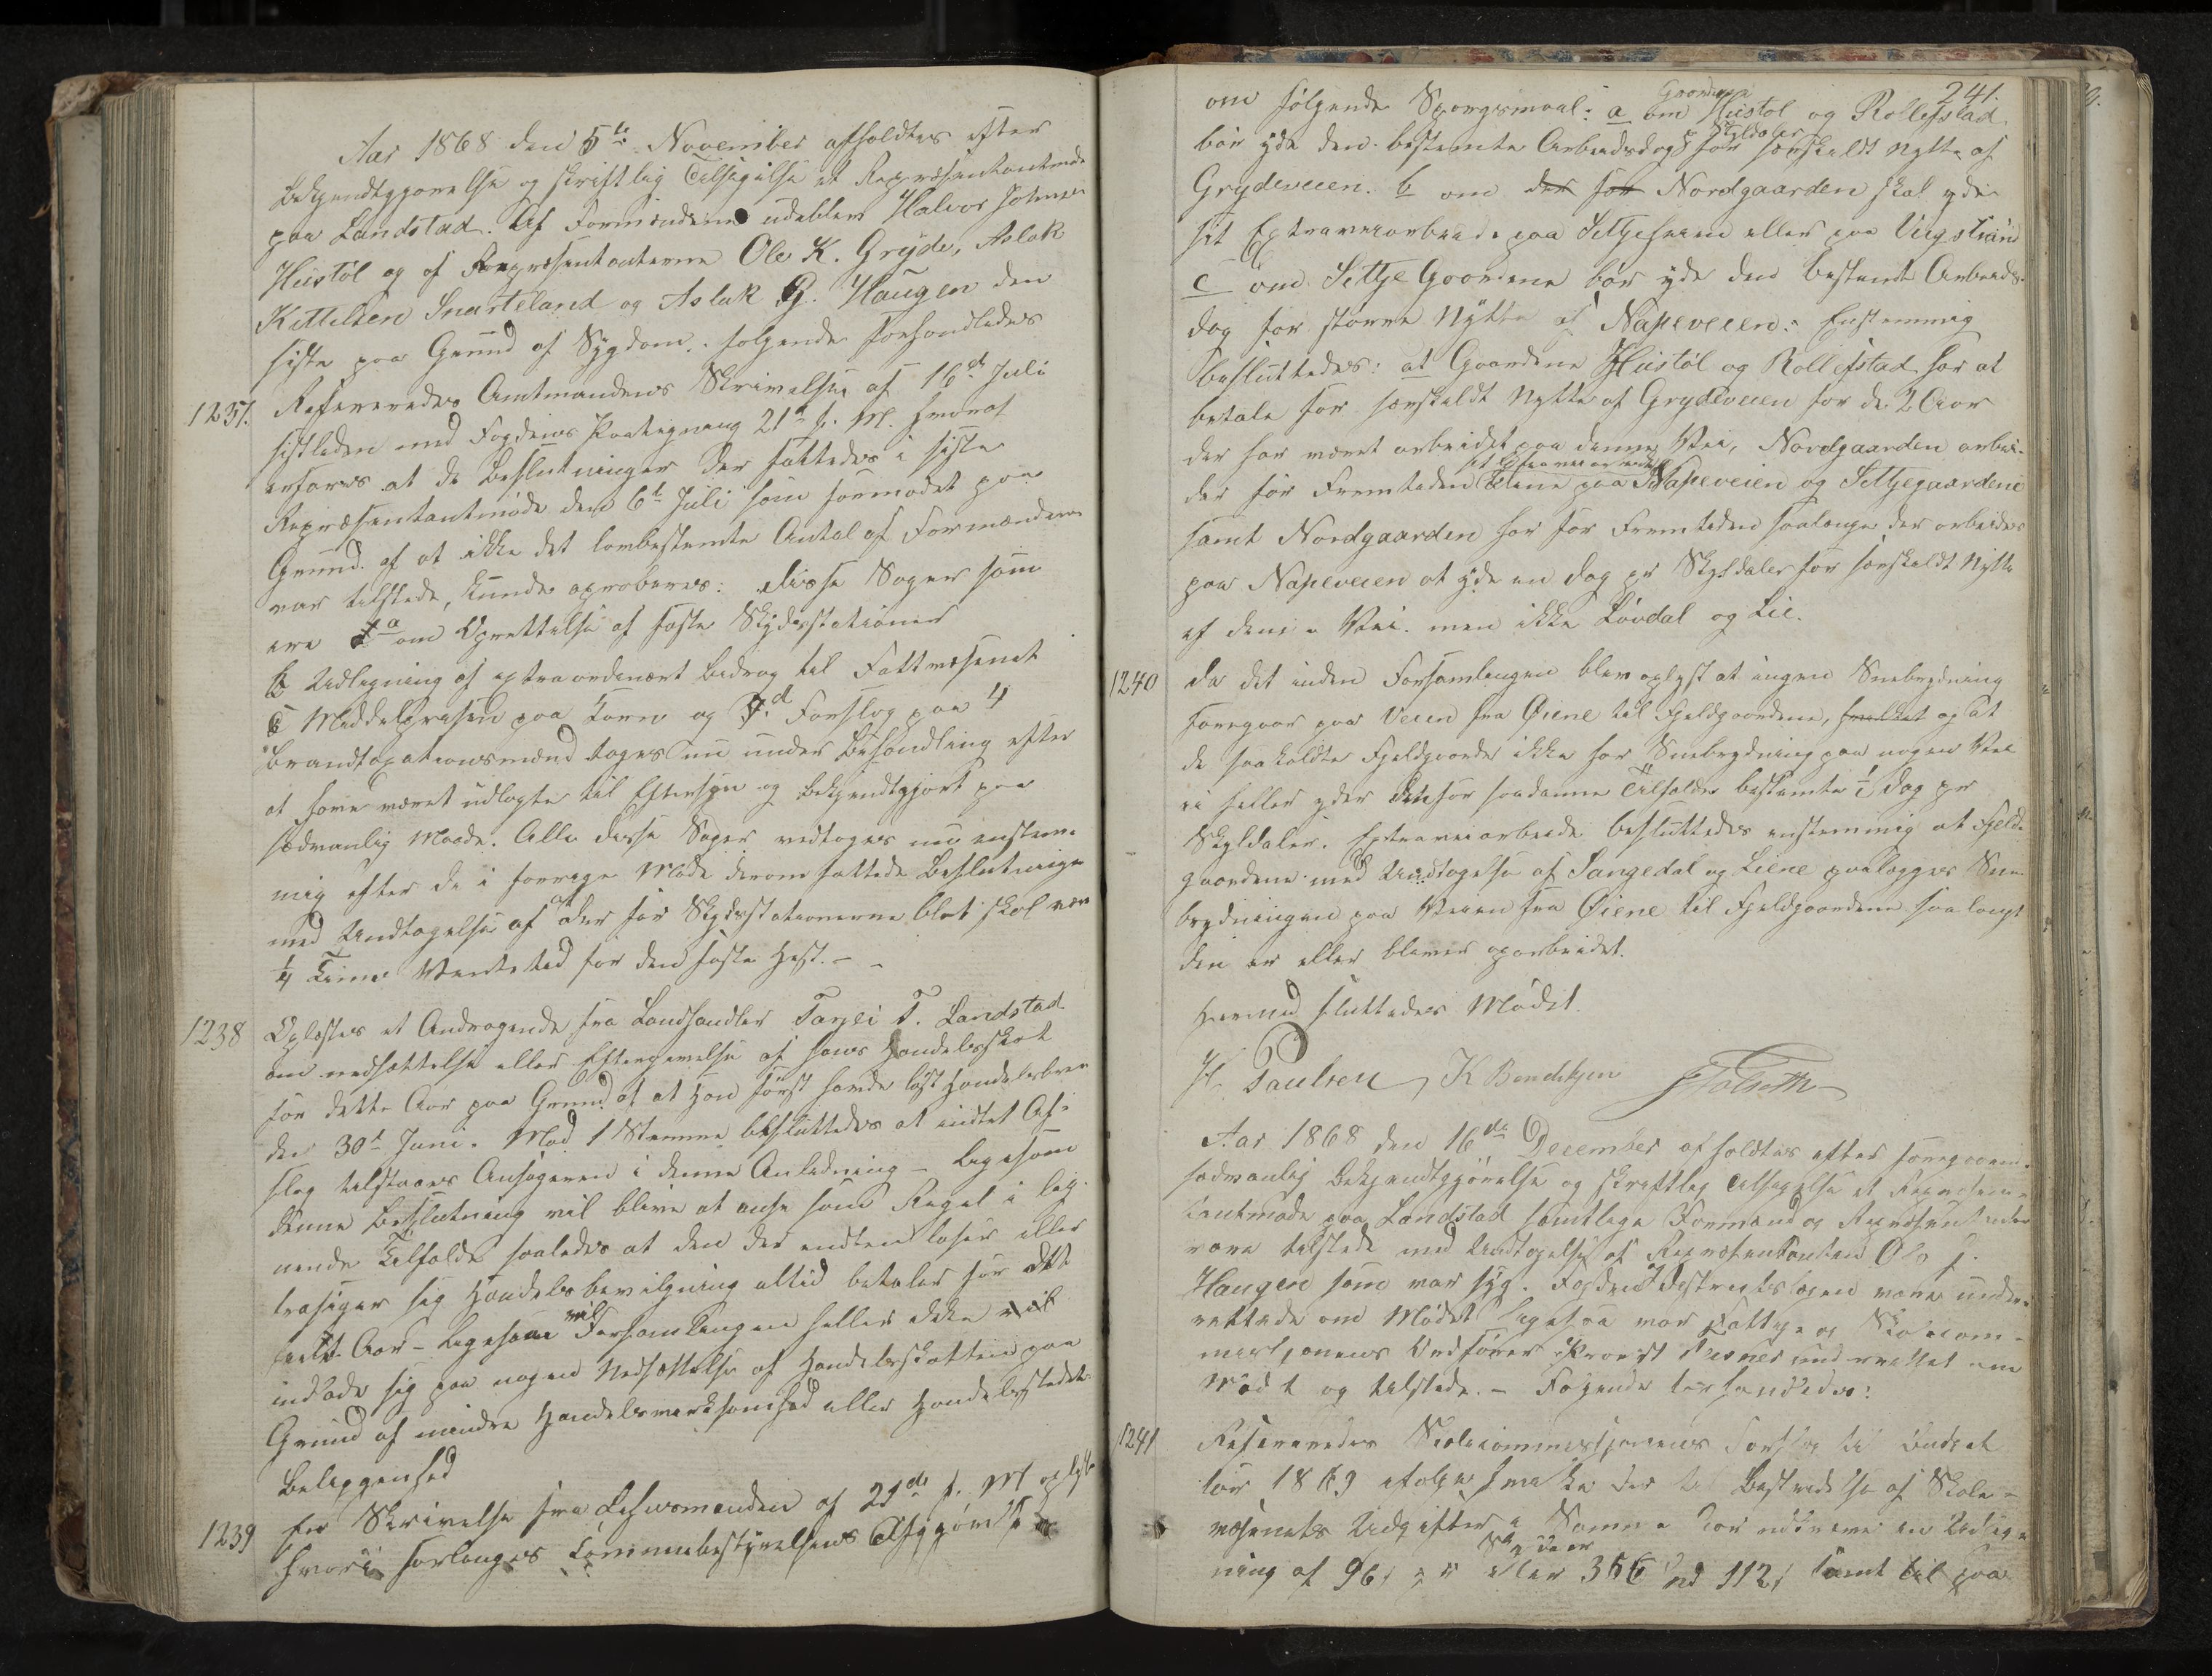 Aar 1868 den 5te November afholdtes efter
Bekjendtgjørelse og skriftlig Tilsigelse et Repræsentantmøde
paa Landstad. Af Formændene udeblev Halvor Johnsen
Hustøl og af Repræsentanterne Ole K. Gryde, Aslak
Kittilsen Snarteland og Aslak G. Haugen den
siste paa Grund af Sygdom. følgende forhandledes
1237. Refereredes Amtmandens Skrivelse af 16de Juli
sistleden med Fogdens Paategning 21de s. M. hvoraf
erfares at de Beslutninger der fattedes i siste
Repræsentantmøde den 6te Juli som formodet paa
Grund af at ikke det lovbestemte Antal af Formændene
var tilstede, kunde aproberes: disse Sager som
ere a om Oprettelse af faste Skydsstationer
b Udligning af extraordinært Bidrag til Fattivæsenet
c Middelprisen paa Korn og d Forslag paa 4
Brandtaxationsmænd toges nu under Behandling efter
at have været udlagte til Eftersyn og bekjendtgjort paa
sædvanlig Maade. Alle disse Sager vedtoges nu enstem-
mig efter de i forrige Møde derom fattede Beslutninger
med Undtagelse af at der for Skydsstationerne blot skal være
1/4 Times Ventetid for den første Hest. –
1238 Oplæstes et Andragende fra Landhandler Tarjei T. Landstad
om nedsættelse eller Eftergivelse af hans Handelsskat
for dette Aar paa Grund af at Han først havde løst Handelsbrev
den 30te Juni. Mod 1 Stemme besluttedes at intet Af-
slag tilstaaes Ansøgeren i denne Anledning – ligesom
denne Beslutning vil blive at anse som Regel i lig-
nende Tilfælde saaledes at den der endten løser eller
frasiger sig Handelsbevilgning altid betaler for det
fulde Aar – ligesom vil Forsamlingen heller ikke vil
indlade sig paa nogen Nedsættelse af Handelsskatten paa
Grund af mindre Handelsvirksomhed eller Handelsstedets
Beliggenhed
1239 En Skrivelse fra Lehnsmanden af 21de s. M oplæst
hvori forlanges Communebestyrelsens Afgjørelse
241.
om følgende Spørgsmaal: a om Gaardene Hustøl og Rollefstad
bør yde den bestemte Arbeidsdag pr Skyldaler for særskildt Nytte af
Grydeveien. b om der for Nordgaarden skal yde
sit Extraveiarbeide paa Sittjeveien eller paa Veigstrand
c om Sittje Gaardene bør yde den bestemte Arbeids-
dag for større Nytte af Napeveien. Enstemmig
besluttedes: at Gaardene Hustøl og Rollefstad har at
betale for særskildt Nytte af Grydeveien for de 2 Aar
der har været arbeidet paa denne Vei, Nordgaarden arbei-
der for Fremtiden sit Extraveiarbeide alene paa Napeveien og Sittjegaardene
samt Nordgaarden har for Fremtiden saalænge der arbeides
paa Napeveien at yde en Dag pr Skyldaler for særskildt Nytte
af denne Vei. men ikke Løvdal og Lie.
1240 Da det inden Forsamlingen blev oplyst at ingen Snebrydning
foregaar paa Veien fra Øiene til Fjeldgaardene, og at
de saakaldte Fjeldgaarde ikke har Snebrydning paa nogen Vei
ei heller yder den for saadanne Tilfælde bestemte 1/2 Dag pr
Skyldaler. Extraveiarbeide besluttedes enstemmig at Fjeld-
gaardene med Undtagelse af Langedal og Liene paalægges Sne-
brydningen paa Veien fra Øiene til Fjeldgaardene saa langt
den er eller bliver oparbeidet.
Hermed sluttedes Mødet.
H. Paulsen, K Bendiksen J Talseth
Aar 1868 den 16de December afholdtes efter foregaaende
sædvanlig Bekjendtgjørelse og skriftlig Tilsigelse et Repræsen-
tantmøde paa Landstad samtlige Formænd og Repræsentanter
vare tilstede med Undtagelse af Repræsentanten Ole
Haugen som var syg. Fogden og Districtslægen vare under-
rettede om Mødet ligesaa var Fattige og Skolecom-
missionens Ordfører Provst undrrettet om
Mødet og tilstede. – Følgende forhandledes:
1241 Refereredes Skolecommissjonens Forslag til Budget
for 1869 ifølge hvilke der til Bestridelse af Skole-
væsenets Udgifter i Nævnte Aar udkræves en Udlig-
ning af 96 eller Skyldaler 356 112 samt til paa